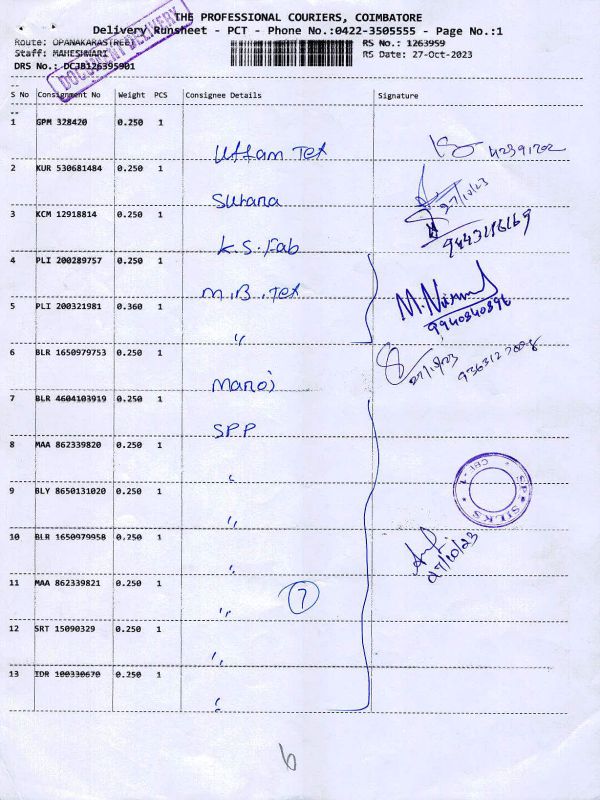 THE PROFESSIONAL COURIERS, COIMBATORE
Delivery Runsheet - PCT - Phone No.:0422-3505555 - Page No.:1
Route: OPANAKARAS(REE) RS No.: 1263959
Staff: MAHESHWARI RS Date: 27-Oct-2023
DRS No.: DCJB126395901
DOCUMENT DELIVERY
S No Consignment No Weight PCS Consignee Details Signature
1 GPM 328420 0.250 1
Uttam Tex 42391202
2 KUR 530681484 0.250 1
Surana 27/10/23
3 KCM 12918814 0.250 1
K.S. Fab 9443216169
4 PLI 200289757 0.250 1
M.B. Tex
5 PLI 200321981 0.360 1
" 9940840896
6 BLR 1650979753 0.250 1
Manoj 27/10/23
7 BLR 4604103919 0.250 1
SPP
8 MAA 862339820 0.250 1
"
9 BLY 8650131020 0.250 1
"
SP SILKS
CBE-1
10 BLR 1650979958 0.250 1
"
27/10/23
11 MAA 862339821 0.250 1
" 7
12 SRT 15090329 0.250 1
"
13 IDR 100330670 0.250 1
"
6